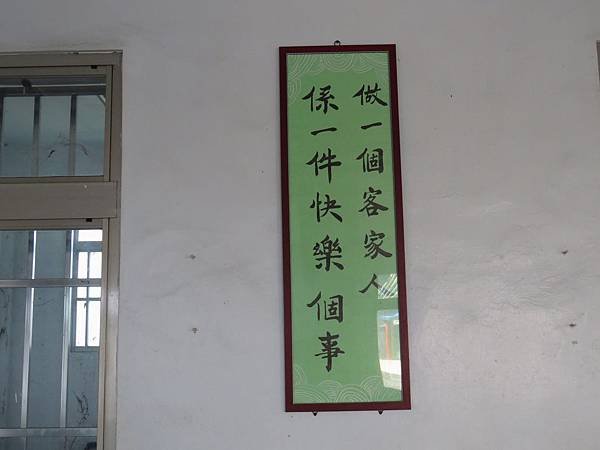 做一個客家人
係一件快樂個事